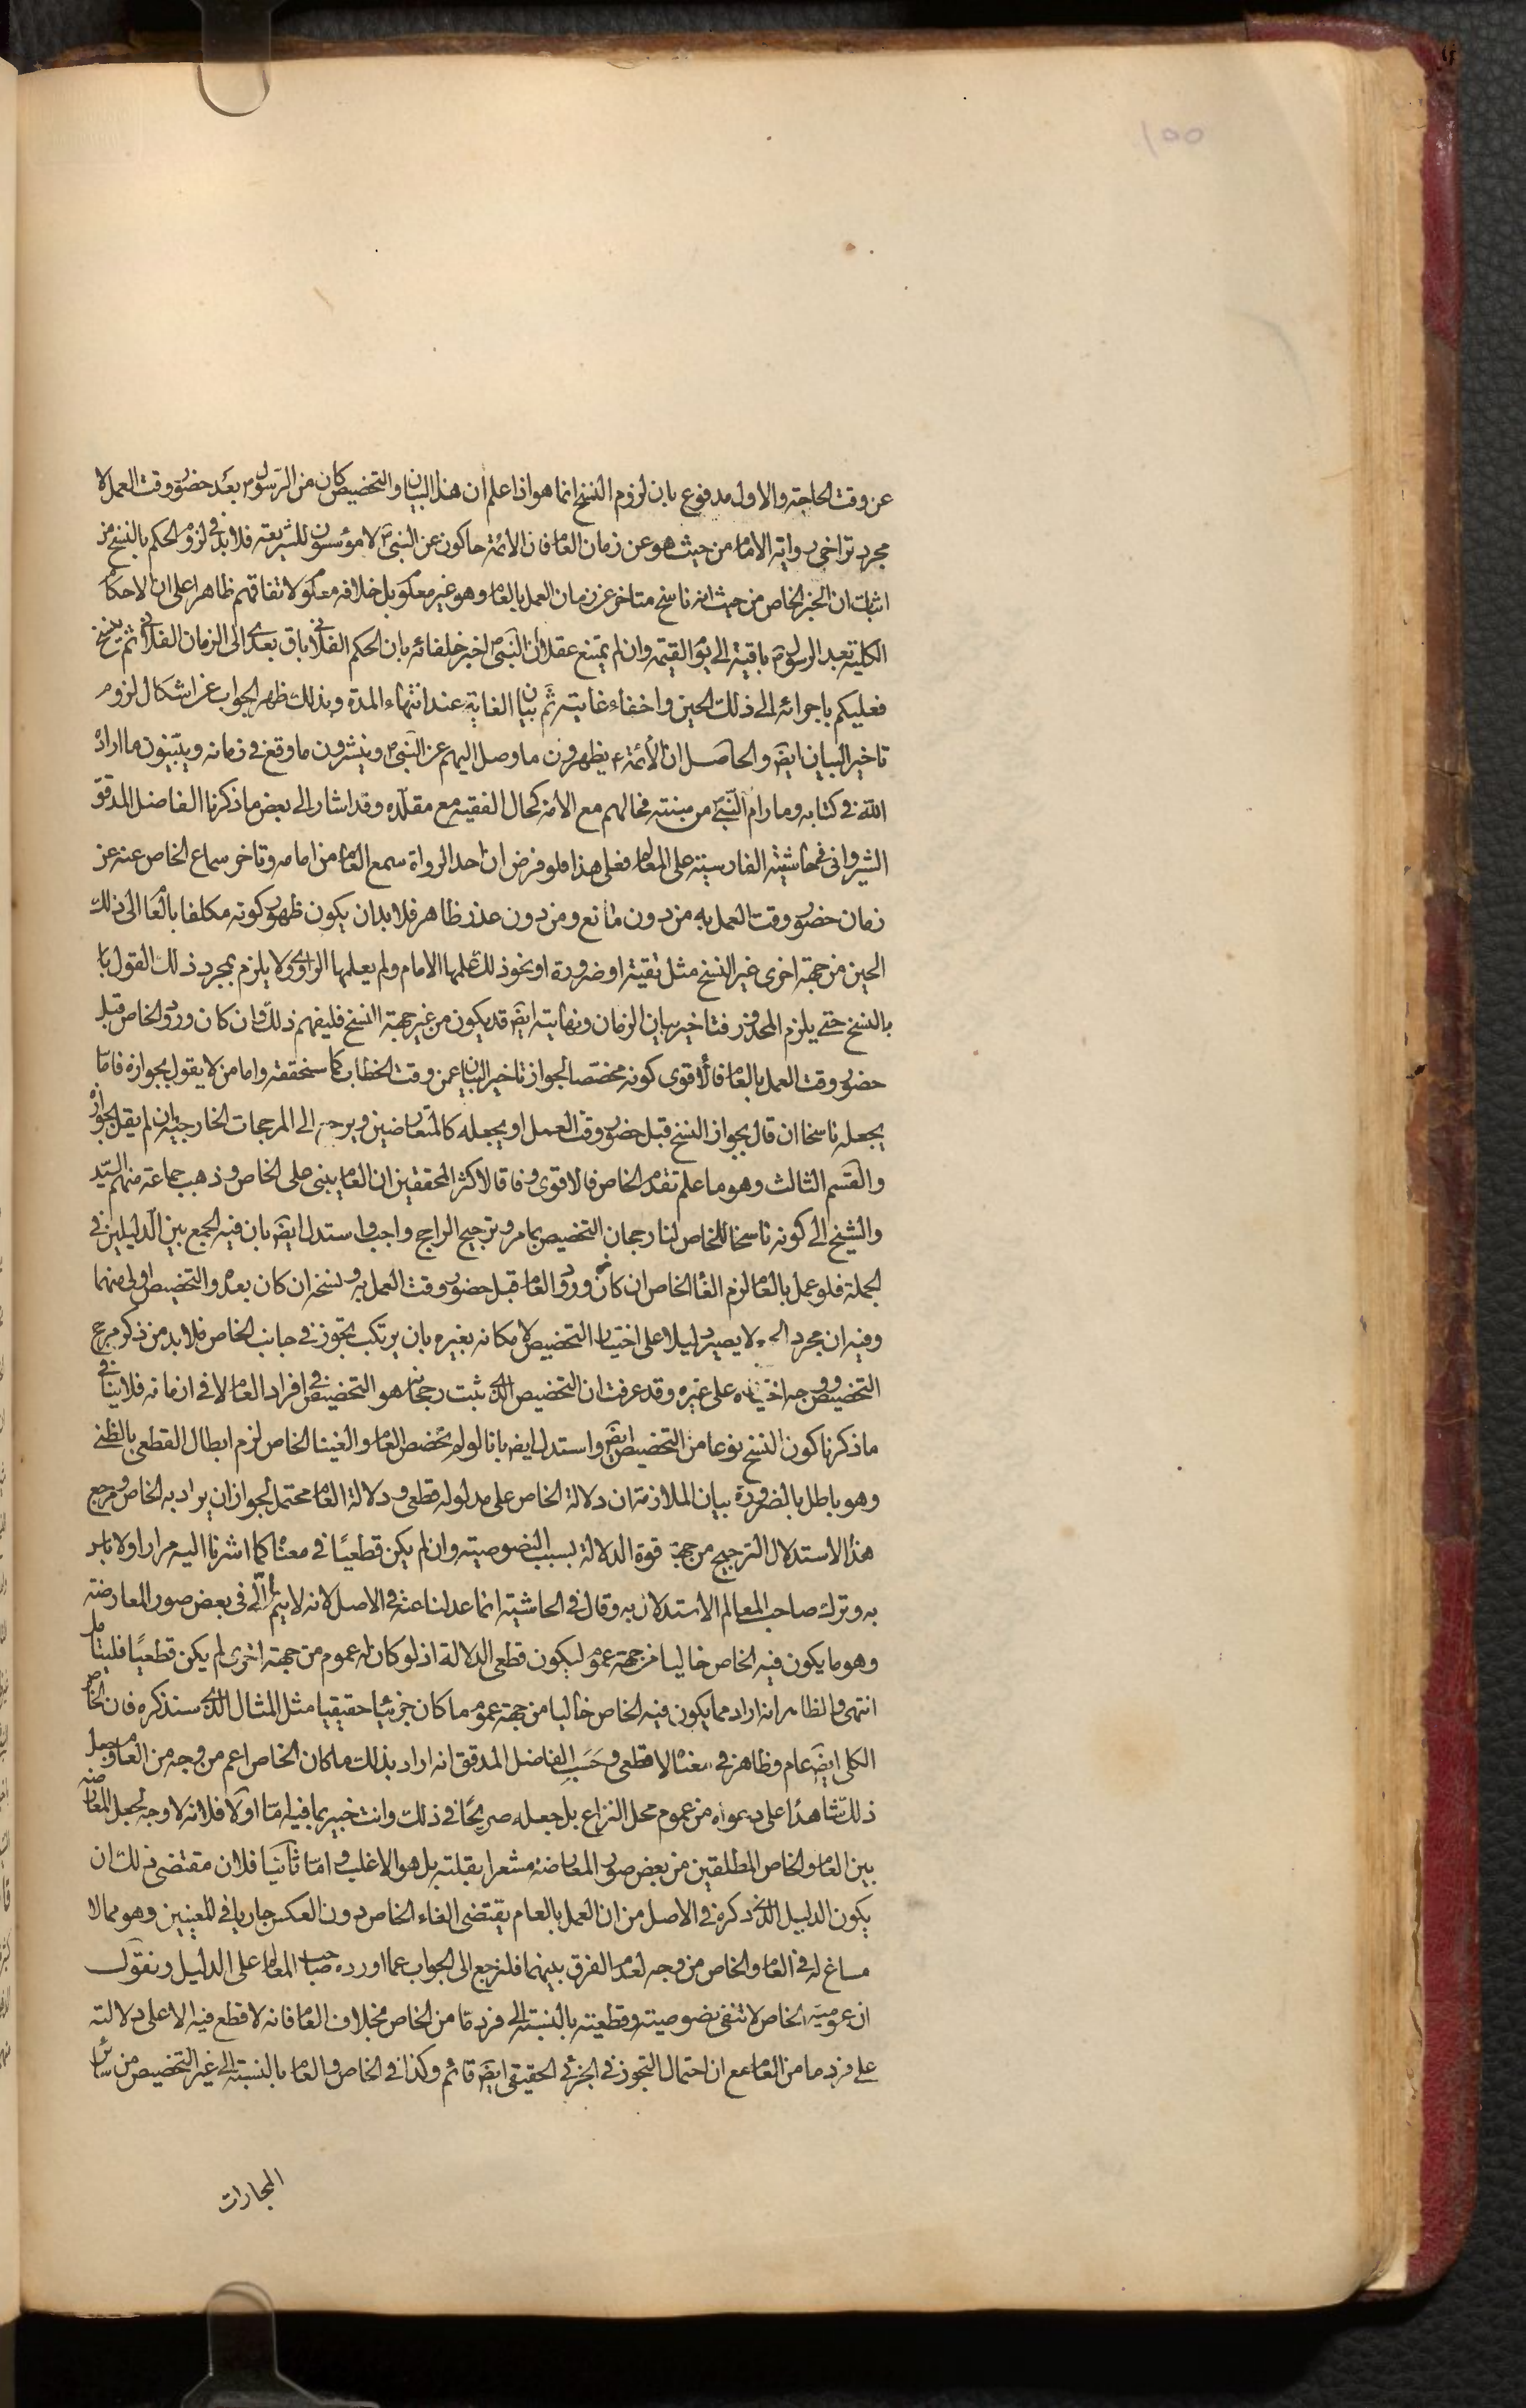 ١٥٥
عن وقت الحاجة والاول مدفوع بان لزوم النسخ انما هو اذا علم ان هذا البيان والتخصيص كان من الرسول ص بعد حضور وقت العمل لا
مجرد تراخى رواية الامام من حيث هو عن زمان العام فان الائمة حاكون عن النبى ص لا مؤسسون للشريعة فلا بد فى لزوم الحكم بالنسخ من
اثبات ان الخبر الخاص من حيث انه ناسخ متاخر عن زمان العمل بالعام وهو غير معلوم بل خلافه معلوم لاتفاقهم ظاهرا على ان الاحكام
الكلية بعد الرسول ص باقية الى يوم القيمة وان لم يمتنع عقلا ان النبى ص اخبر خلفائه بان الحكم الفلانى باق بعدى الى الزمان الفلانى ثم ينسخ
فعليكم باجرائه الى ذلك الحين واخفاء غايته ثم بيان الغاية عند انتهاء المدة وبذلك ظهر الجواب عن اشكال لزوم
تاخير البيان ايضا والحاصل ان الأئمة ع يظهرون ما وصل اليهم عن النبى ص وينشرون ما وقع فى زمانه ويبينون ما اراده
الله فى كتابه وما رام النبى ص من سنته فحالهم مع الامة كحال الفقيه مع مقلده وقد اشار الى بعض ما ذكرنا الفاضل المدقق
الشيروانى فى حاشيته الفارسية على المعالم فعلى هذا فلو فرض ان احد الرواة سمع العام من امامه وتاخر سماع الخاص عنه عن
زمان حضور وقت العمل به من دون مانع ومن دون عذر ظاهر فلا بد ان يكون ظهور كونه مكلفا بالعام الى ذلك
الحين من جهة اخرى غير النسخ مثل تقية او ضرورة او نحو ذلك علمها الامام ولم يعلمها الراوى ولا يلزم بمجرد ذلك القول با
بالنسخ حتى يلزم المحذور فتاخير بيان الزمان ونهايته ايضا قد يكون من غير جهة النسخ فليفهم ذلك وان كان ورود الخاص قبل
حضور وقت العمل بالعام فالأقوى كونه مخصصا لجواز تاخير البيان عن وقت الخطاب كما سنحققه واما من لا يقول بجوازه فاما
يجعله ناسخا ان قال بجواز النسخ قبل حضور وقت العمل او يجعله كالمتعارضين ويرجع الى المرجحات الخارجية ان لم يقل بجوازه
والقسم الثالث وهو ما علم تقدم الخاص فالاقوى وفاقا لاكثر المحققين ان العام يبنى على الخاص وذهب جماعة منهم السيد
والشيخ الى كونه ناسخا للخاص لنا رجحان التخصيص بما مر وترجيح الراجح واجب واستدل ايضا بان فيه الجمع بين الدليلين فى
الجملة فلو عمل بالعام لزم الغاء الخاص ان كان ورود العام قبل حضور وقت العمل به ونسخه ان كان بعده والتخصيص اولى منهما
وفيه ان مجرد لا يصير دليلا على اختيار التخصيص لامكانه بغيره بان يرتكب تجوز فى جانب الخاص فلا بد من ذكر مرجح
التخصيص ووجه اختياره على غيره وقد عرفت ان التخصيص الذى ثبت رجحانه هو التخصيص فى افراد العام لا فى ازمانه فلا ينافى
ما ذكرنا كون النسخ نوعا من التخصيص ايضا واستدل ايضا بانا لو لم نخصص العام والغينا الخاص لزم ابطال القطعى بالظنى
وهو باطل بالضرورة بيان الملازمة ان دلالة الخاص على مدلوله قطعى ودلالة العام محتمل لجواز ان يراد به الخاص ومرجع
هذا الاستدلال الترجيح من جهة قوة الدلالة بسبب النصوصية وان لم يكن قطعيًا فى معناه كما اشرنا اليه مرارا ولا باس
به وترك صاحب المعالم الاستدلال به وقال فى الحاشية انما عدلنا عنه فى الاصل لانه لا يتم الا فى بعض صور المعارضة
وهو ما يكون فيه الخاص خاليا من جهة عموم ليكون قطعى الدلالة اذ لو كان له عموم من جهة اخرى لم يكن قطعيًا فليتامل
انتهى والظاهر انه اراد مما يكون فيه الخاص خاليا من جهة عموم ما كان جزئيا حقيقيا مثل المثال الذى سنذكره فان الخاص
الكلى ايضا عام وظاهر فى معناه لا قطعى وحسب الفاضل المدقق انه اراد بذلك ما كان الخاص اعم من وجه من العام وجعل
ذلك شاهدًا على دعواه من عموم محل النزاع بل جعله صريحًا فى ذلك وانت خبير بما فيه امّا اوّلا فلانه لا وجه لجعل المعارضة
بين العام والخاص المطلقين من بعض صور المعارضة مشعرا بقلته بل هو الاغلب وامّا ثانيًا فلان مقتضى ذلك ان
يكون الدليل الذى ذكره فى الاصل من ان العمل بالعام يقتضى الغاء الخاص دون العكس جاريا فى المعنيين وهو مما لا
مساغ له فى العام والخاص من وجه لعدم الفرق بينهما فلنرجع الى الجواب عما اورده صاحب المعالم على الدليل ونقول
ان عمومية الخاص لا تنفى نصوصيته وقطعيته بالنسبة الى فرد ما من الخاص بخلاف العام فانه لا قطع فيه الا على دلالته
على فرد ما من العام مع ان احتمال التجوز فى الجزئى الحقيقى ايضا قائم وكذا فى الخاص والعام بالنسبة الى غير التخصيص من سائر
المجازات